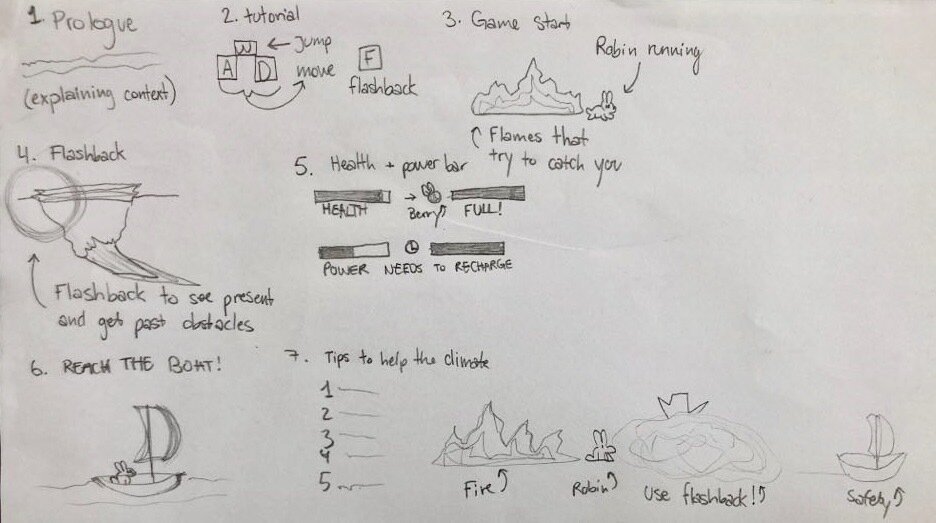 1. Prologue
(explaining context)
2. tutorial
W
← Jump
A
D
move
F
flashback
3. Game start
Robin running
Flames that
try to catch you
4. Flashback
Flashback to see present
and get past obstacles
5. Health + power bar
HEALTH
→
Berry
FULL!
POWER NEEDS TO RECHARGE
6. REACH THE BOAT!
7. Tips to help the climate
1
2
3
4
5
Fire
Robin
Use flashback!
Safety